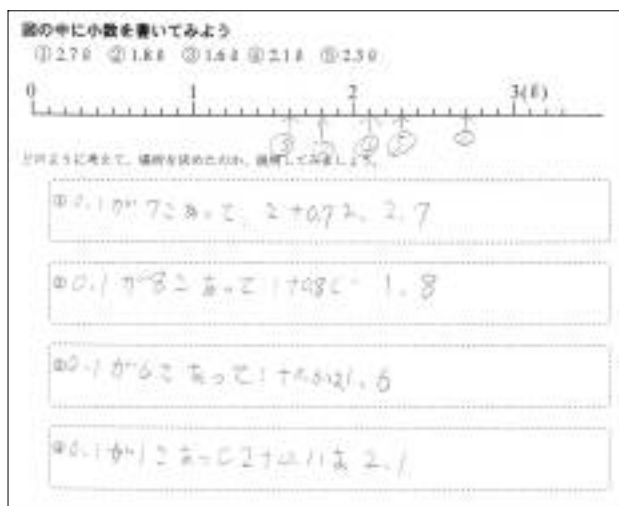 図の中に小数を書いてみよう
①2.7ℓ ②1.8ℓ ③1.6ℓ ④2.1ℓ ⑤2.3ℓ
0 1 2 3(ℓ)
③ ② ④ ⑤ ①
どのように考えて、場所を決めたのか、説明してみましょう。
①0.1が7こあって、2+0.7で、2.7
②0.1が8こあって1+0.8で 1.8
③0.1が6こあって1+0.6は1.6
④0.1が1こあって2+0.1は2.1